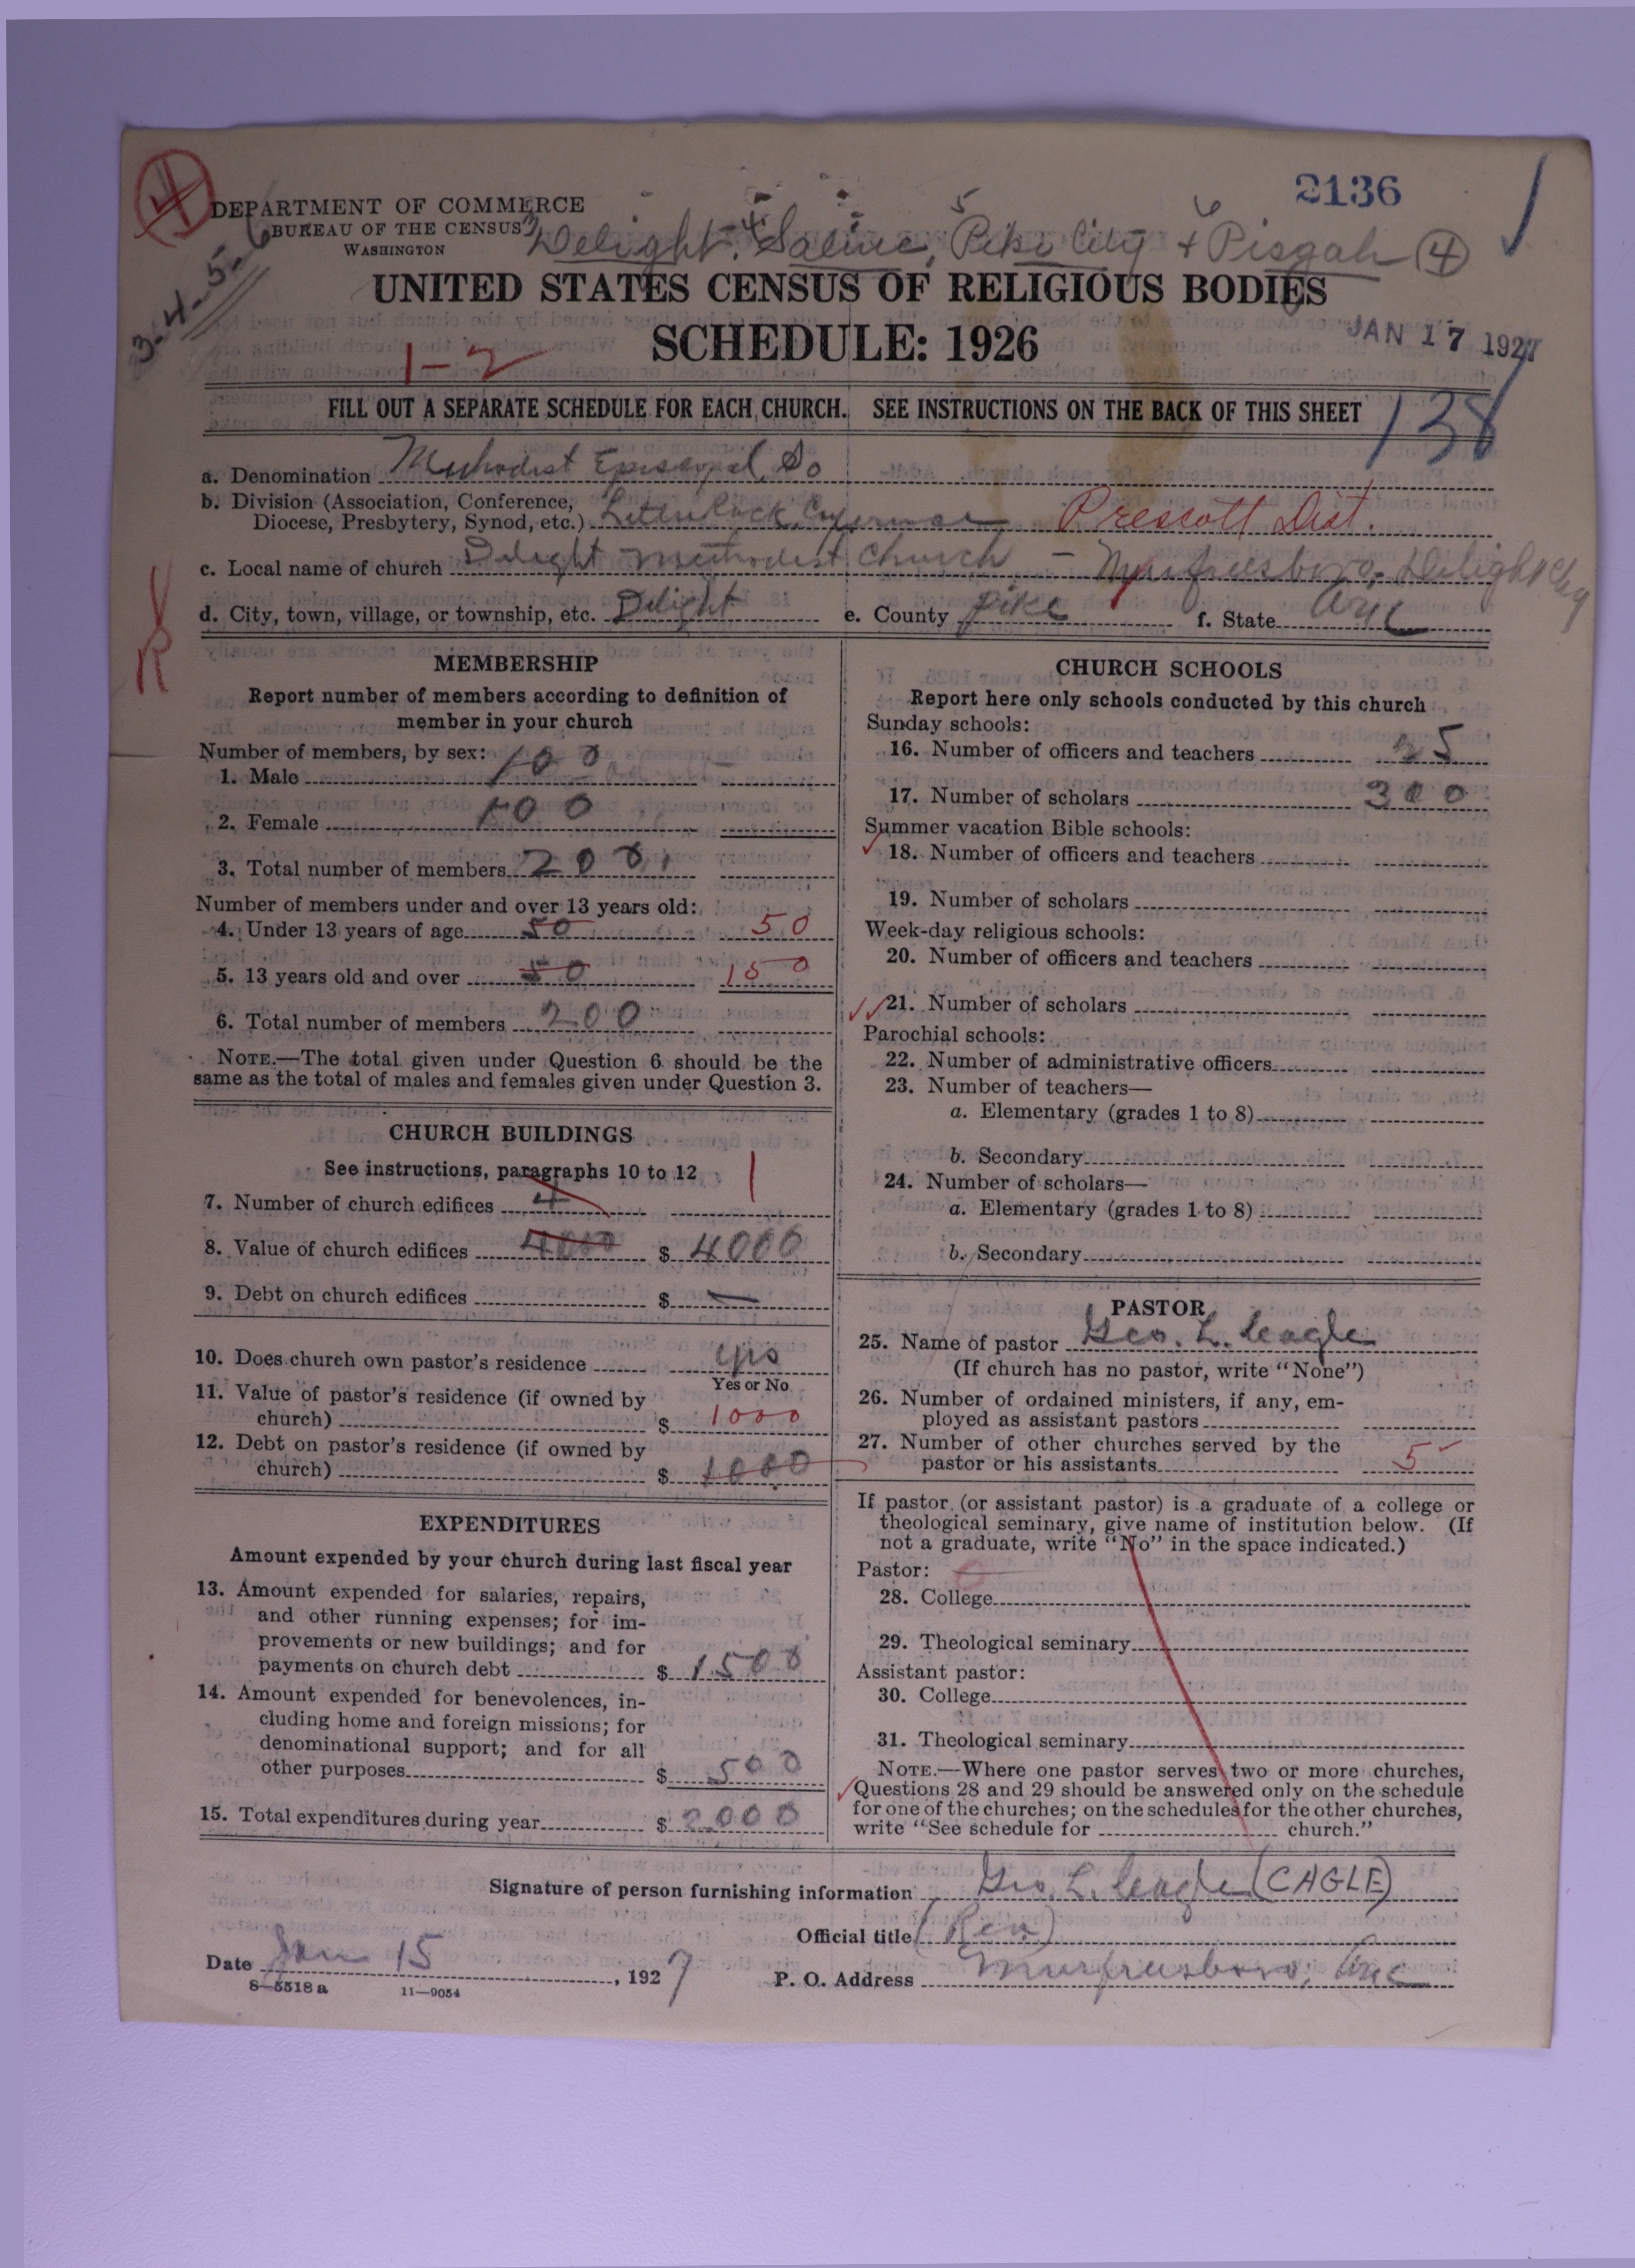 2136
DEPARTMENT OF COMMERCE
BUREAU OF THE CENSUS
WASHINGTON
3 Delight, 4 Saline, 5 Pike City + 6 Pisgah (4)
3-4-5-6
UNITED STATES CENSUS OF RELIGIOUS BODIES
SCHEDULE: 1926
JAN 17 1927
1-2
138
FILL OUT A SEPARATE SCHEDULE FOR EACH CHURCH. SEE INSTRUCTIONS ON THE BACK OF THIS SHEET
a. Denomination Methodist Episcopal, So
b. Division (Association, Conference,
Diocese, Presbytery, Synod, etc.) Little Rock Conference Prescott Dist.
c. Local name of church Delight Methodist Church - Murfreesboro-Delight Chg
d. City, town, village, or township, etc. Delight e. County Pike f. State Ark
MEMBERSHIP
Report number of members according to definition of
member in your church
Number of members, by sex:
1. Male 100
2. Female 100
3. Total number of members 200
Number of members under and over 13 years old:
4. Under 13 years of age 50 50
5. 13 years old and over 50 150
6. Total number of members 200
NOTE.—The total given under Question 6 should be the
same as the total of males and females given under Question 3.
CHURCH BUILDINGS
See instructions, paragraphs 10 to 12
7. Number of church edifices 4 1
8. Value of church edifices 4000 $ 4000
9. Debt on church edifices $ —
10. Does church own pastor's residence yes
Yes or No
11. Value of pastor's residence (if owned by
church) $ 1000
12. Debt on pastor's residence (if owned by
church) $ 1000
EXPENDITURES
Amount expended by your church during last fiscal year
13. Amount expended for salaries, repairs,
and other running expenses; for im-
provements or new buildings; and for
payments on church debt $ 1500
14. Amount expended for benevolences, in-
cluding home and foreign missions; for
denominational support; and for all
other purposes $ 500
15. Total expenditures during year $ 2000
CHURCH SCHOOLS
Report here only schools conducted by this church
Sunday schools:
16. Number of officers and teachers 25
17. Number of scholars 300
Summer vacation Bible schools:
18. Number of officers and teachers
19. Number of scholars
Week-day religious schools:
20. Number of officers and teachers
21. Number of scholars
Parochial schools:
22. Number of administrative officers
23. Number of teachers—
a. Elementary (grades 1 to 8)
b. Secondary
24. Number of scholars—
a. Elementary (grades 1 to 8)
b. Secondary
PASTOR
25. Name of pastor Geo. L. Cagle
(If church has no pastor, write "None")
26. Number of ordained ministers, if any, em-
ployed as assistant pastors
27. Number of other churches served by the
pastor or his assistants 5
If pastor (or assistant pastor) is a graduate of a college or
theological seminary, give name of institution below. (If
not a graduate, write "No" in the space indicated.)
Pastor:
28. College
29. Theological seminary
Assistant pastor:
30. College
31. Theological seminary
NOTE.—Where one pastor serves two or more churches,
Questions 28 and 29 should be answered only on the schedule
for one of the churches; on the schedules for the other churches,
write "See schedule for church."
Signature of person furnishing information Geo. L. Cagle (CAGLE)
Official title (Rev)
Date Jan 15, 1927 P. O. Address Murfreesboro, Ark
8-5518 a 11-9054